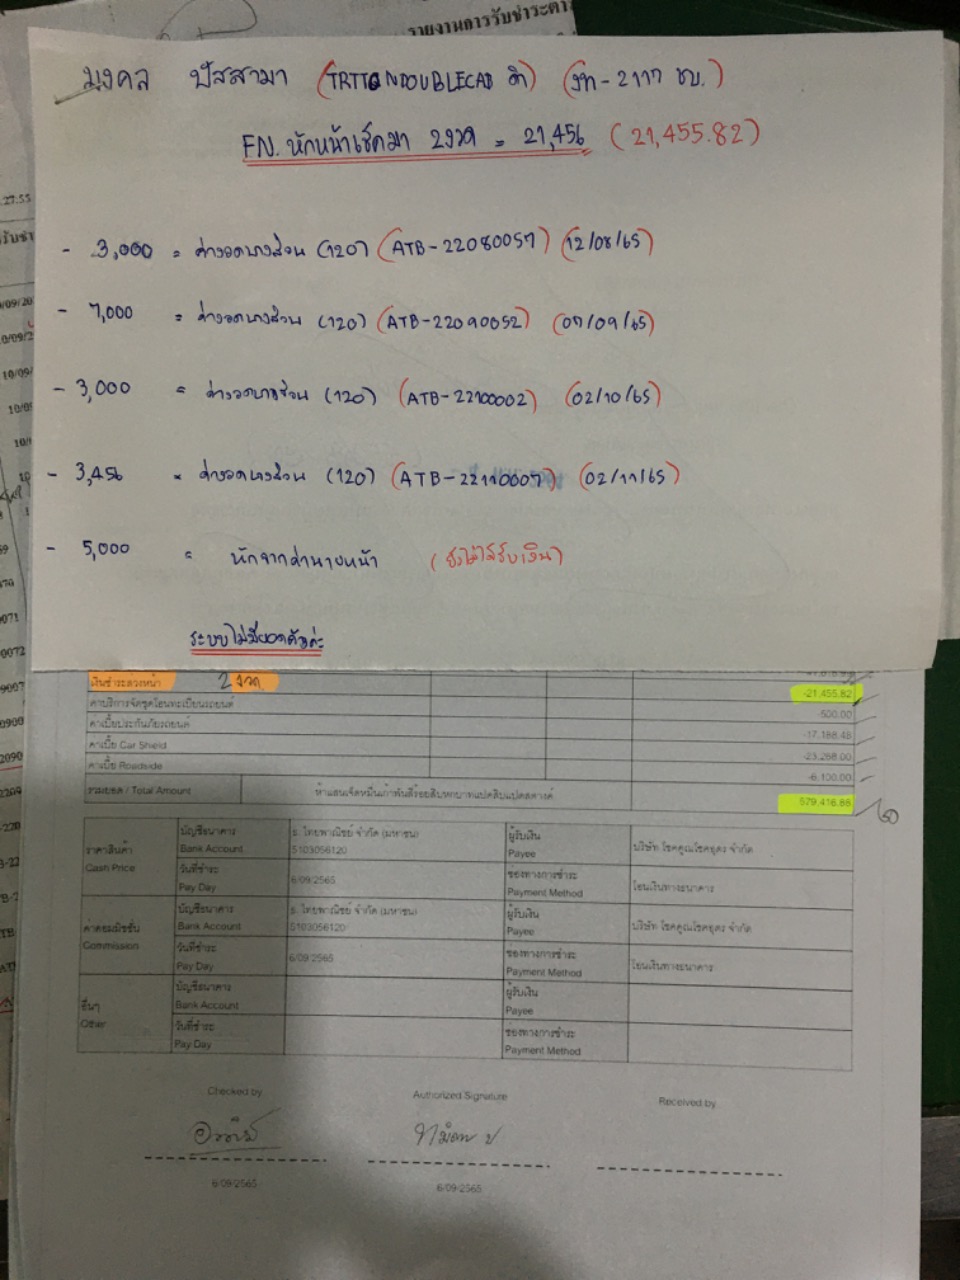 รายงานการรับชำระค่า
มงคล ปัสสามา (TRITON DOUBLECAB ดำ) (งท-2117 ชบ.)
FN. หักหน้าเช็คมา 2งวด = 21,456 (21,455.82)
27:55
- 3,000 = ค่างวดบางส่วน (120) (ATB-22080057) (12/08/65)
- 7,000 = ค่างวดบางส่วน (120) (ATB-22090052) (07/09/65)
- 3,000 = ค่างวดบางส่วน (120) (ATB-22100002) (02/10/65)
- 3,456 = ค่างวดบางส่วน (120) (ATB-22110005) (02/11/65)
- 5,000 = หักจากค่านายหน้า (ยังไม่ได้รับเงิน)
ระบบไม่มียอดค้างค่ะ
เงินชำระล่วงหน้า 2 งวด -21,455.82
ค่าบริการจัดชุดโอนทะเบียนรถยนต์ -500.00
ค่าเบี้ยประกันภัยรถยนต์ -17,188.48
ค่าเบี้ย Car Shield -23,268.00
ค่าเบี้ย Roadside -6,100.00
รวมยอด / Total Amount ห้าแสนเจ็ดหมื่นเก้าพันสี่ร้อยสิบหกบาทแปดสิบแปดสตางค์ 579,416.88
ราคาสินค้า บัญชีธนาคาร ธ. ไทยพาณิชย์ จำกัด (มหาชน) ผู้รับเงิน บริษัท โชคคูณโชคยุคร จำกัด
Cash Price Bank Account 5103056120 Payee
วันที่ชำระ 6/09/2565 ช่องทางการชำระ โอนเงินทางธนาคาร
Pay Day Payment Method
ค่าคอมมิชชั่น บัญชีธนาคาร ธ. ไทยพาณิชย์ จำกัด (มหาชน) ผู้รับเงิน บริษัท โชคคูณโชคยุคร จำกัด
Commission Bank Account 5103056120 Payee
วันที่ชำระ 6/09/2565 ช่องทางการชำระ โอนเงินทางธนาคาร
Pay Day Payment Method
อื่นๆ บัญชีธนาคาร ผู้รับเงิน
Other Bank Account Payee
วันที่ชำระ ช่องทางการชำระ
Pay Day Payment Method
Checked by Authorized Signature Received by
6/09/2565 6/09/2565